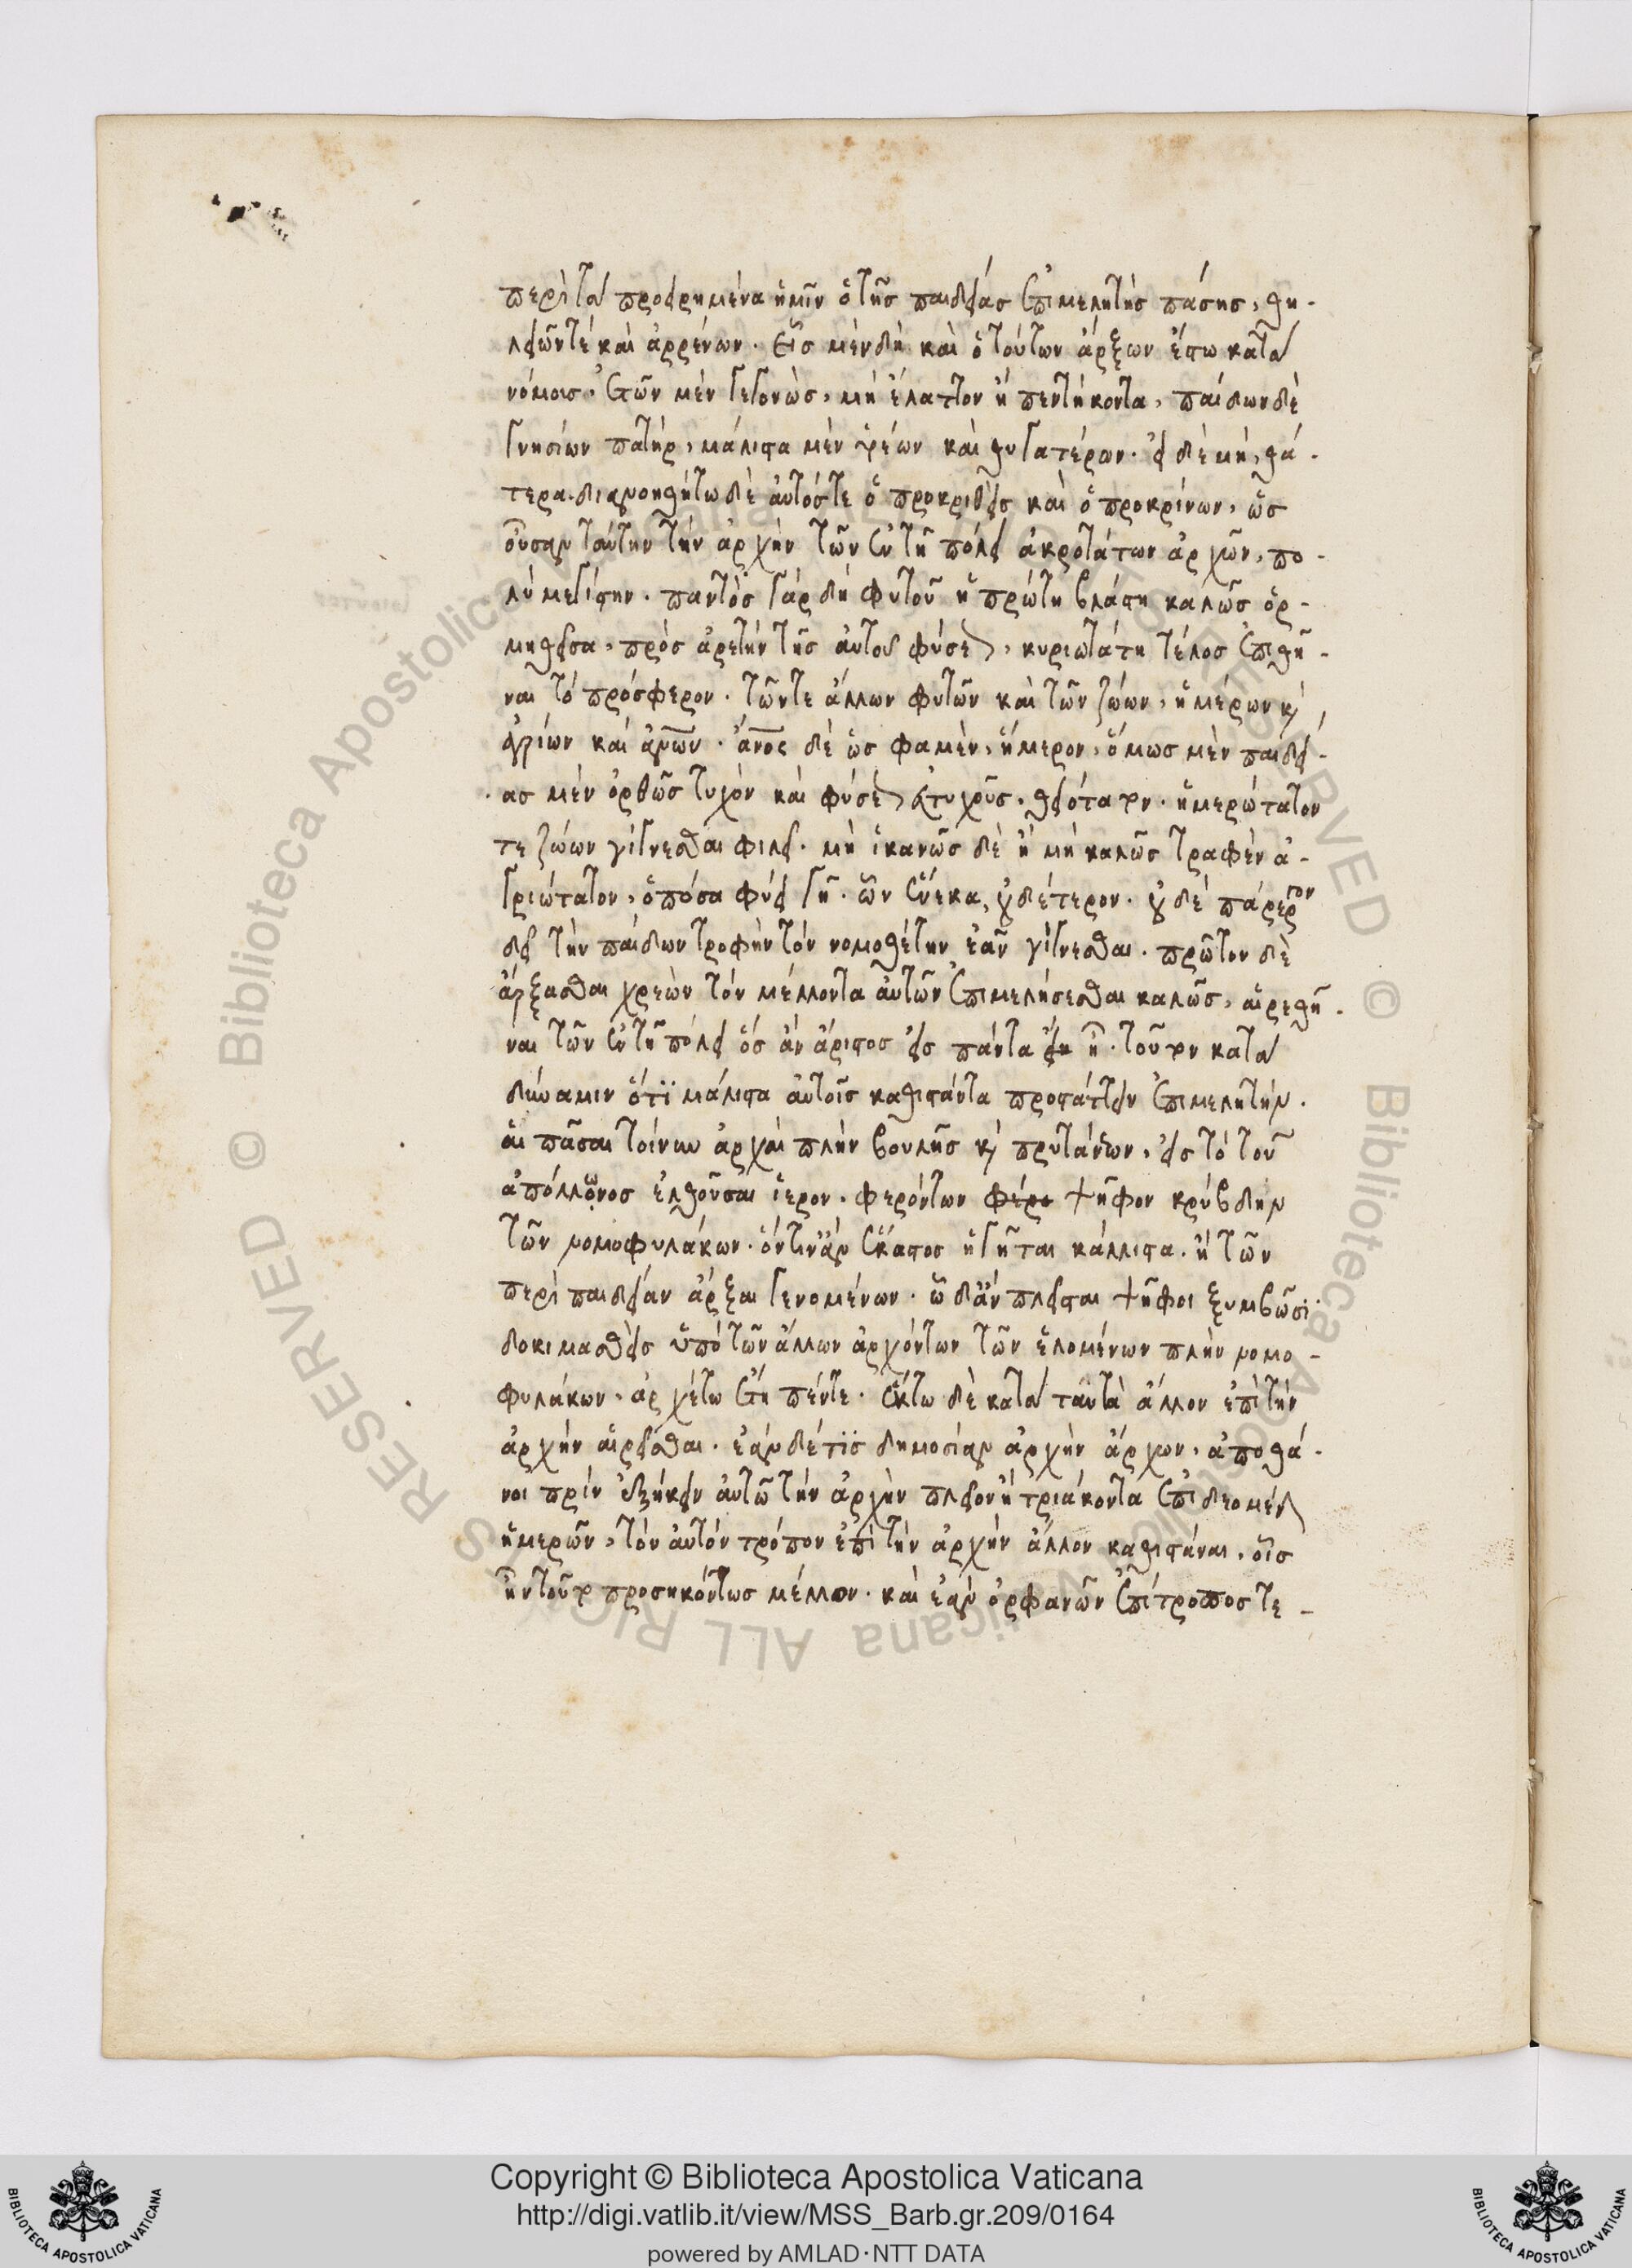 περὶ τὰ προειρημένα ἡμῖν ὁ τῆς παιδείας ἐπιμελητὴς πάσης, θη-
λειῶν τὲ καὶ ἀρρένων. εἷς μὲν δὴ καὶ ὁ τούτων ἄρξων ἔστω κατὰ
νόμους. ἐτῶν μὲν γεγονὼς, μὴ ἔλαττον ἢ πεντήκοντα, παίδων δὲ
γνησίων πατὴρ, μάλιστα μὲν ὑέων καὶ θυγατέρων. εἰ δὲ μὴ, θά-
τερα. διανοηθήτω δὲ αὐτός τε ὁ προκριθεὶς καὶ ὁ προκρίνων, ὡς
οὖσαν ταύτην τὴν ἀρχὴν τῶν ἐν τῇ πόλει ἀκροτάτων ἀρχῶν, πο-
λὺ μεγίστην. παντὸς γὰρ δὴ φυτοῦ ἡ πρώτη βλάστη καλῶς ὁρ-
μηθεῖσα, πρὸς ἀρετὴν τῆς αὐτοῦ φύσεως, κυριωτάτη τέλος ἐπιθῆ-
ναι τὸ πρόσφερον. τῶν τε ἄλλων φυτῶν καὶ τῶν ζώων, ἡμέρων κ(αὶ)
ἀγρίων καὶ ἀνων. ἄνος δὲ ὥς φαμὲν, ἥμερον, ὅμως μὲν παιδεί-
ας μὲν ὀρθῶς τυχὸν καὶ φύσεως εὐτυχοῦς, θειότατον. ἡμερώτατον
τε ζώων γίγνεσθαι φιλεῖ. μὴ ἱκανῶς δὲ ἢ μὴ καλῶς τραφὲν ἀ-
γριώτατον, ὁπόσα φύει γῆ. ὧν ἕνεκα, οὐ δεύτερον. οὐδὲ πάρεργον
δεῖ τὴν παίδων τροφὴν τὸν νομοθέτην ἐᾶν γίγνεσθαι. πρῶτον δὲ
ἄρξασθαι χρεὼν τὸν μέλλοντα αὐτῶν ἐπιμελήσεσθαι καλῶς, αἱρεθῆ-
ναι τῶν ἐν τῇ πόλει ὃς ἂν ἄριστος εἰς πάντα ᾖ. τοῦτον κατὰ
δύναμιν ὅτι μάλιστα αὐτοῖς καθιστάντα προστάττειν ἐπιμελητήν.
αἱ πᾶσαι τοίνυν ἀρχαὶ πλὴν βουλῆς κ(αὶ) πρυτάνεων, εἰς τὸ τοῦ
ἀπόλλωνος ἐλθοῦσαι ἱερον. φερόντων φέρο ψῆφον κρύβδην
τῶν νομοφυλάκων. ὅντιν' ἂν ἕκαστος ἡγῆται κάλλιστα. ἢ τῶν
περὶ παιδείαν ἄρξαι γενομένων. ᾧ δ' ἂν πλεῖσται ψῆφοι ξυμβῶσι.
δοκιμασθεὶς ὑπὸ τῶν ἄλλων ἀρχόντων τῶν ἑλομένων πλὴν νομο-
φυλάκων. ἀρχέτω ἔτη πέντε. ἕκτῳ δὲ κατὰ ταυτὰ ἄλλον ἐπὶ τὴν
ἀρχὴν αἱρεῖσθαι. ἐὰν δέ τις δημοσίαν ἀρχὴν ἄρχων, ἀποθά-
νοι πρὶν ἐξήκειν αὐτῷ τὴν ἀρχὴν πλεῖον ἢ τριάκοντα ἐπιδεομένων
ἡμερῶν, τὸν αὐτὸν τρόπον ἐπὶ τὴν ἀρχὴν ἄλλον καθιστάναι, οἷς
ἦν τοῦτο προσηκόντως μέλλον. καὶ ἐὰν ὀρφανῶν ἐπίτροπος τε-
Copyright © Biblioteca Apostolica Vaticana
http://digi.vatlib.it/view/MSS_Barb.gr.209/0164
powered by AMLAD·NTT DATA